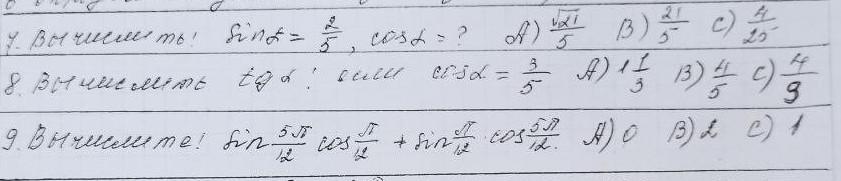 7. Вычислить! Sinα = 2/5, cosα = ? A) √21/5 B) 21/5 C) 4/25
8. Вычислить tgα! если cosα = 3/5 A) 1 1/3 B) 4/5 C) 4/9
9. Вычислите! Sin 5π/12 cos π/12 + sin π/12 · cos 5π/12. A) 0 B) 2 C) 1